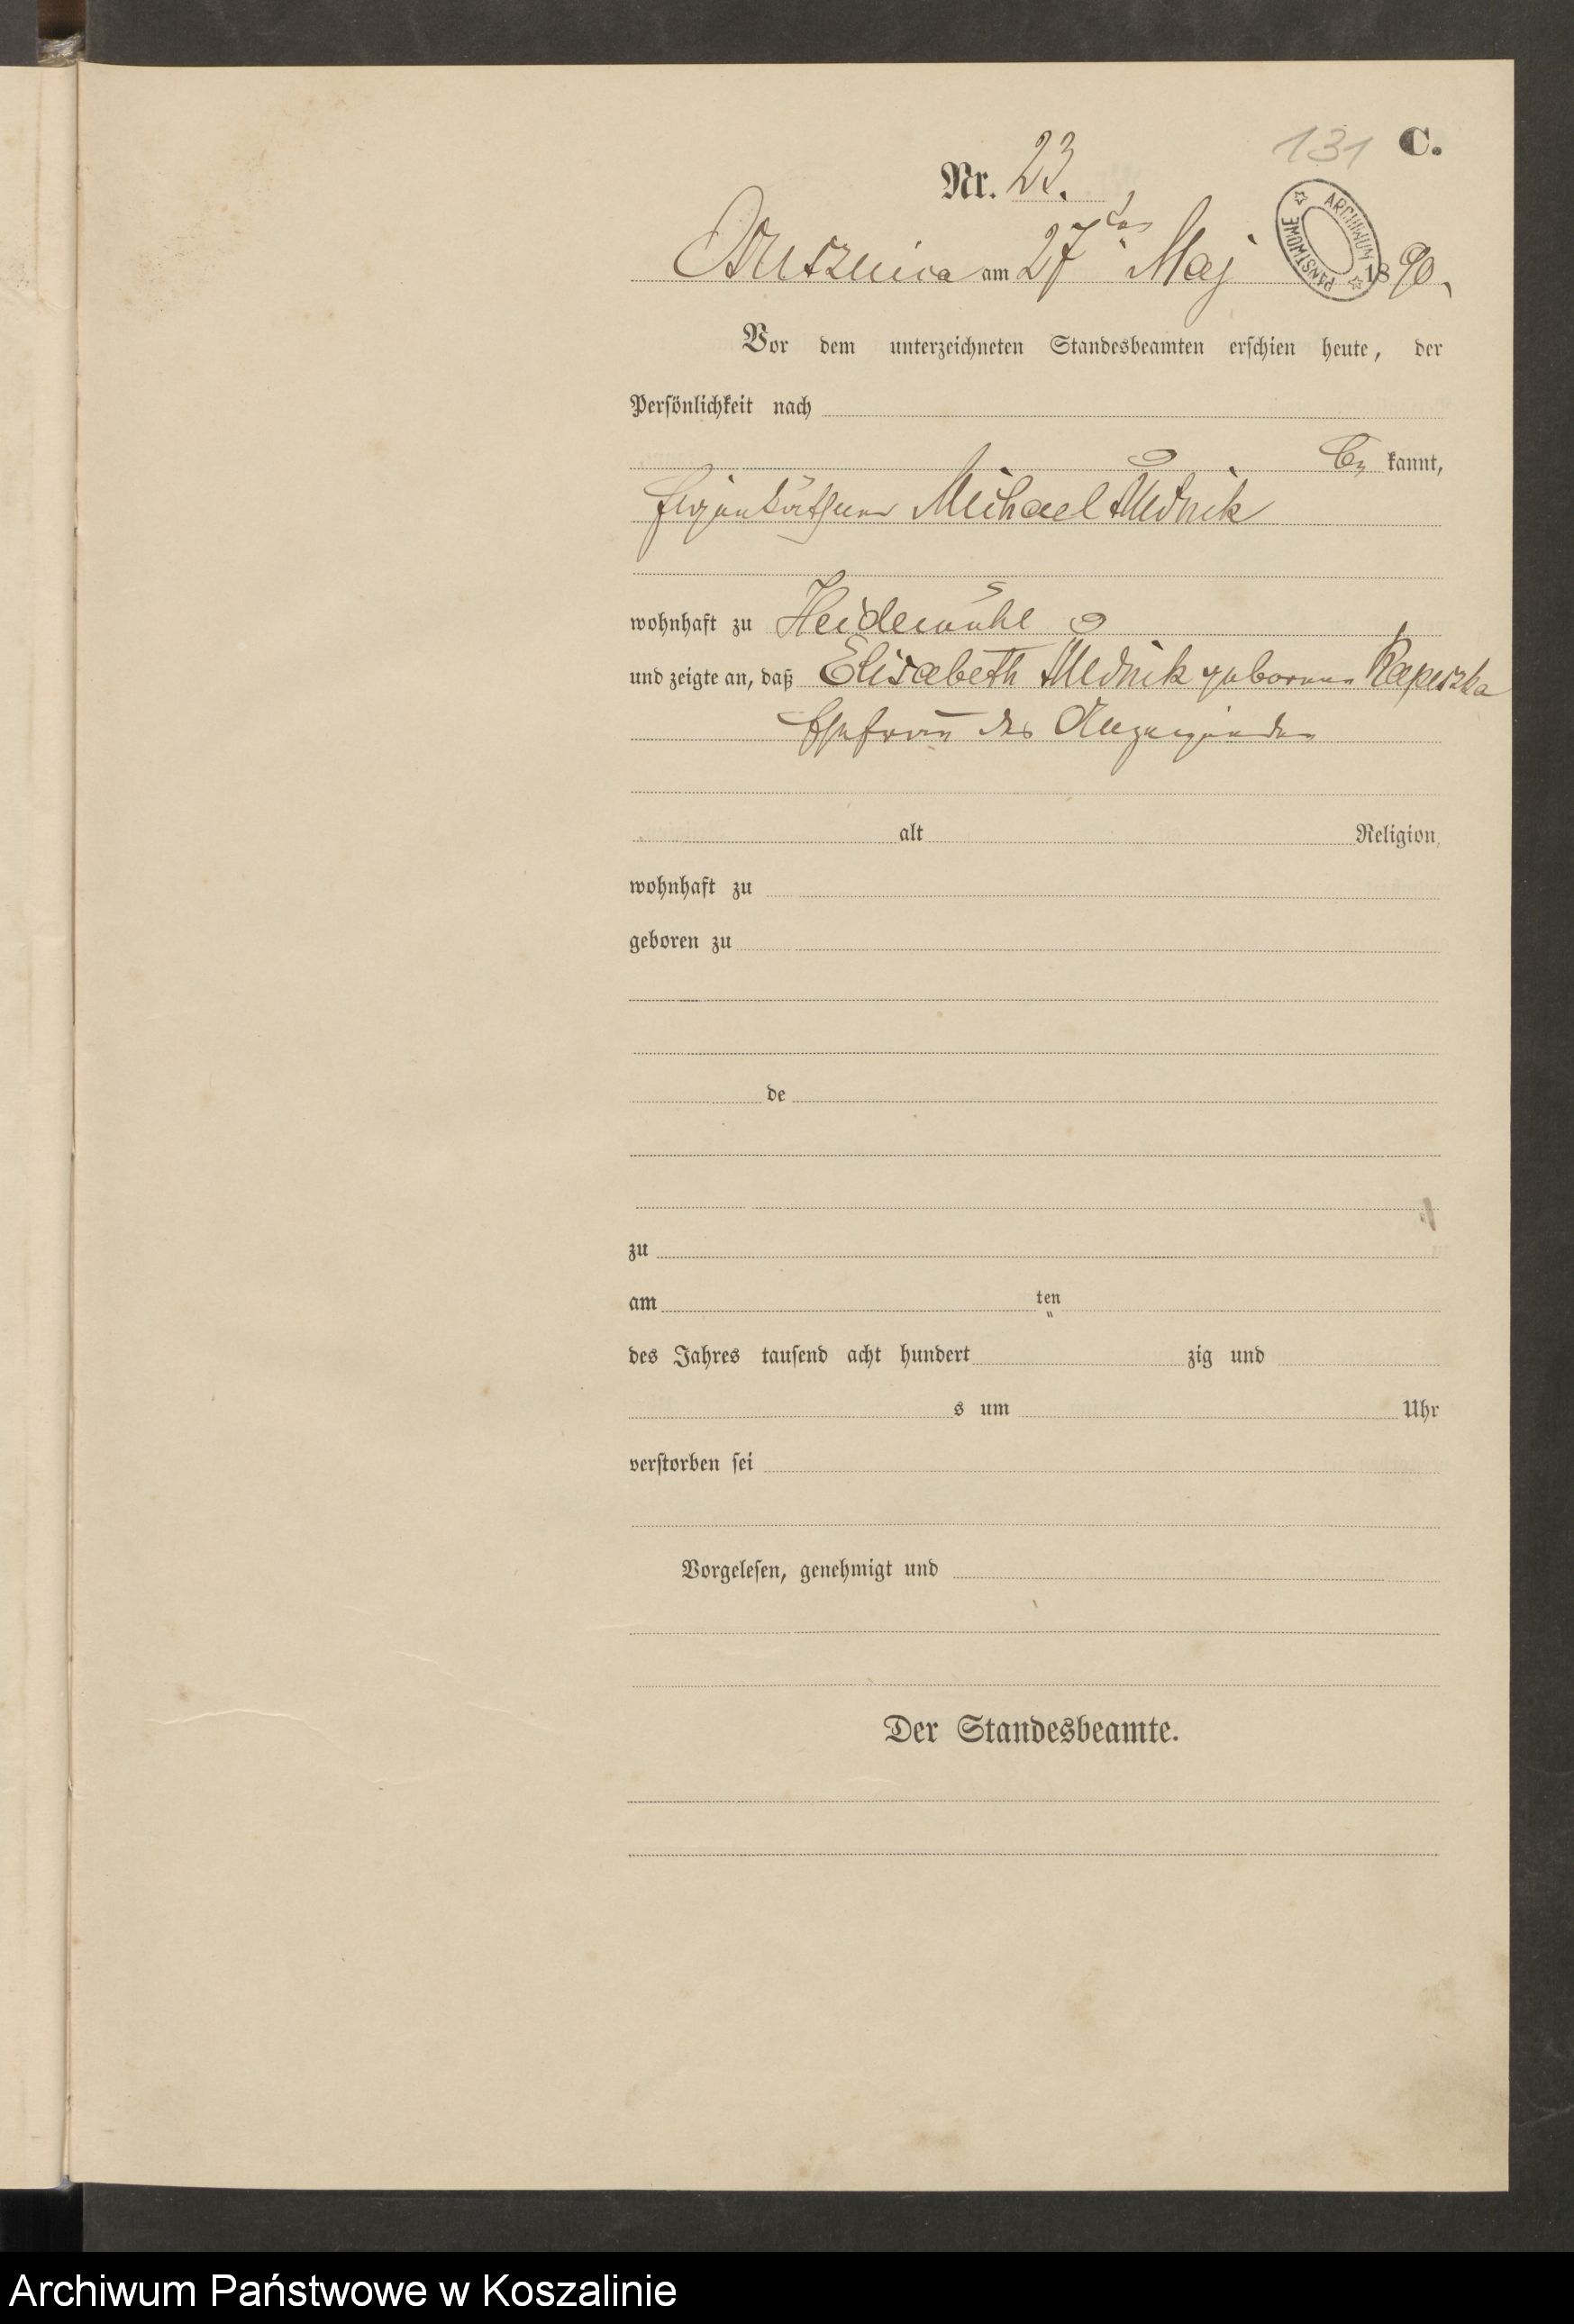 131 C.
Nr. 23.
ARCHIWUM PAŃSTWOWE
Bruszenica am 27ten Maj 1890.
Vor dem unterzeichneten Standesbeamten erschien heute, der
Persönlichkeit nach
be kannt,
Eigenkäthner Michael Mednik
wohnhaft zu Heidemühl
und zeigte an, daß Elisabeth Mednik geborene
Ehefrau des Anzeigenden
alt Religion,
wohnhaft zu
geboren zu
de
zu
am ten
des Jahres tausend acht hundert zig und
s um Uhr
verstorben sei
Vorgelesen, genehmigt und
Der Standesbeamte.
Archiwum Państwowe w Koszalinie